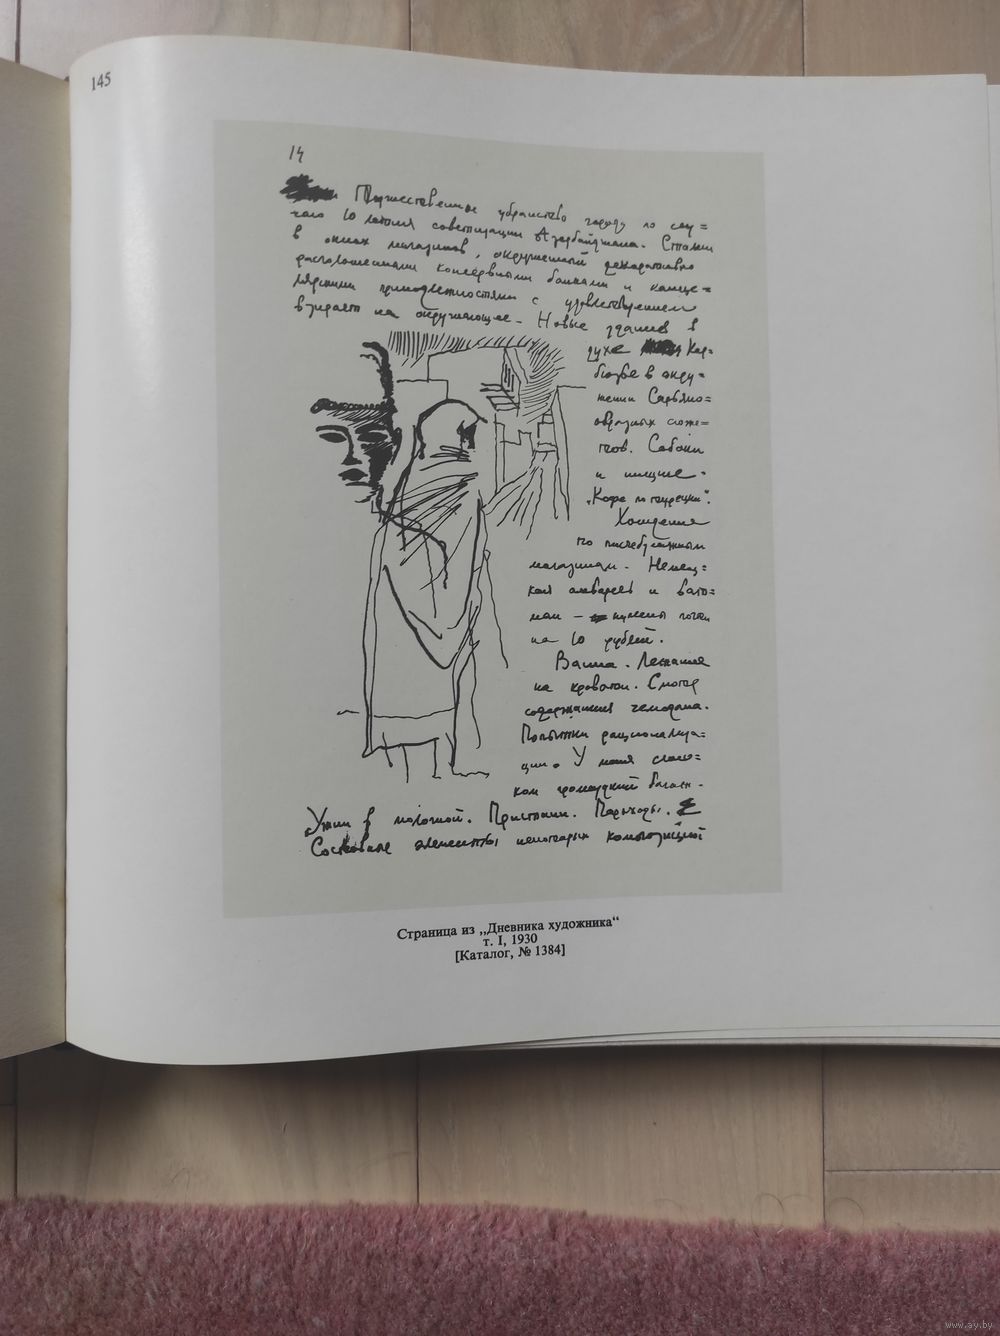 145
14
Торжественное убранство города по слу=
чаю 10 летия советизации Азербайджана. Сталин
в окнах магазинов, окруженный декоративно
расположенными консервными банками и канце=
лярскими принадлежностями с удовлетворением
взирает на окружающее. Новые здания в
духе Кор=
бюзье в окру=
жении Сарьяно=
образных сюже=
тов. Собаки
и нищие.
„Кофе по турецки".
Хождения
по писчебумажным
магазинам. Немец=
кая акварель и ватман
ман — куплены
на 10 рублей.
Ванна. Лежание
на кровати. Смотр
содержания чемодана.
Попытки рационализа=
ции. У меня слиш=
ком громоздкий багаж.
Ужин в молочной. Пристани. Пароходы.
элементы некоторых композиций
Страница из „Дневника художника“
т. I, 1930
[Каталог, № 1384]
www.ay.by